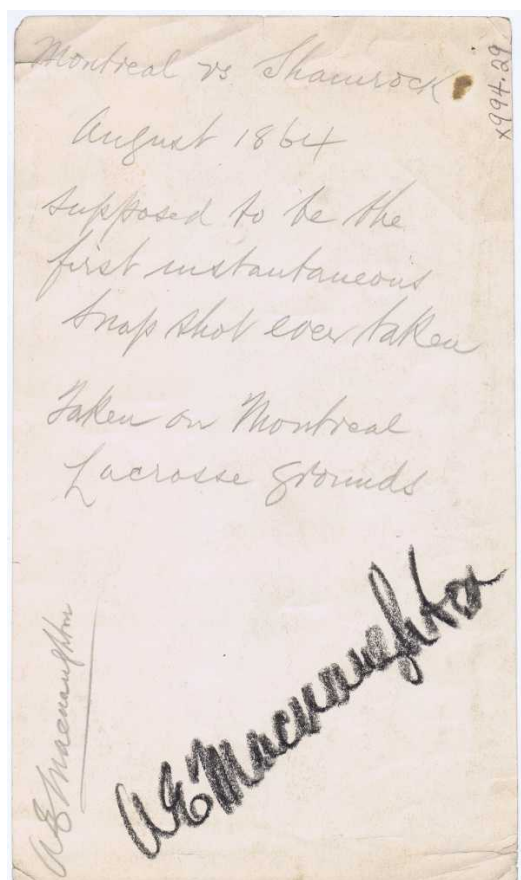 Montreal vs Shamrock
x994.29
August 1864
supposed to be the
first instantaneous
snap shot ever taken
Taken on Montreal
Lacrosse grounds
A E Macnaughton
A E Macnaughton